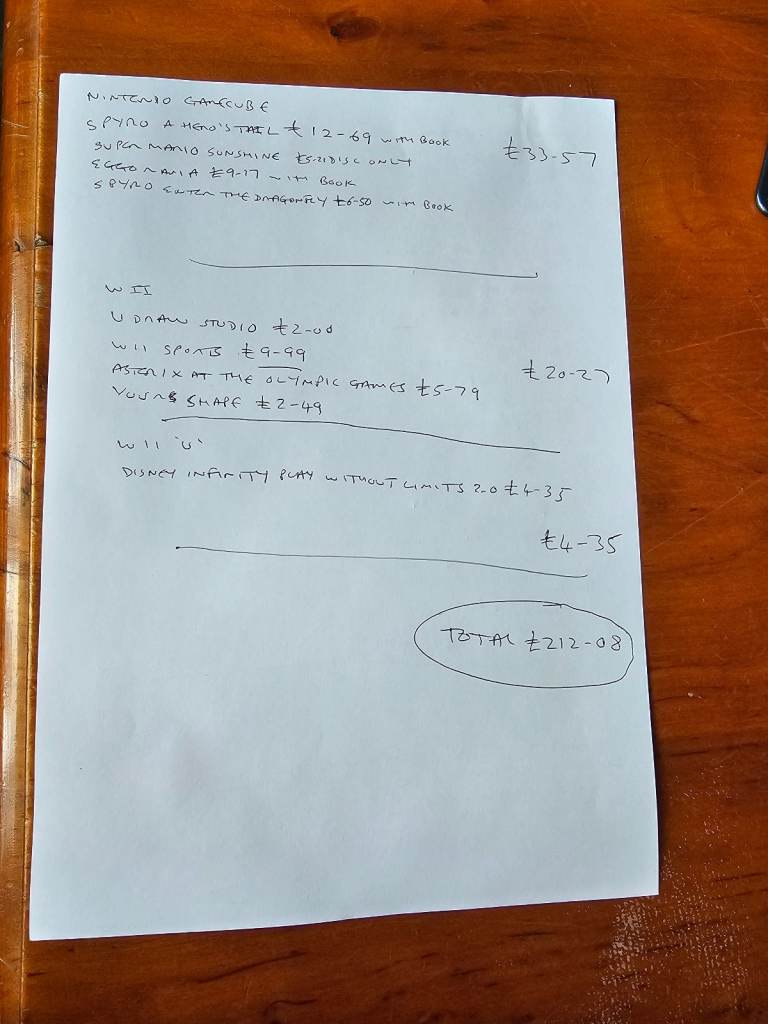 NINTENDO GAMECUBE
SPYRO A HERO'S TAIL £12-69 WITH BOOK
£33-57
SUPER MARIO SUNSHINE £5-21 DISC ONLY
EGGO MANIA £9-17 WITH BOOK
SPYRO ENTER THE DRAGONFLY £6-50 WITH BOOK
WII
U DRAW STUDIO £2-00
WII SPORTS £9-99
£20-27
ASTERIX AT THE OLYMPIC GAMES £5-79
YOUR SHAPE £2-49
WII 'U'
DISNEY INFINITY PLAY WITHOUT LIMITS 2.0 £4-35
£4-35
TOTAL £212-08